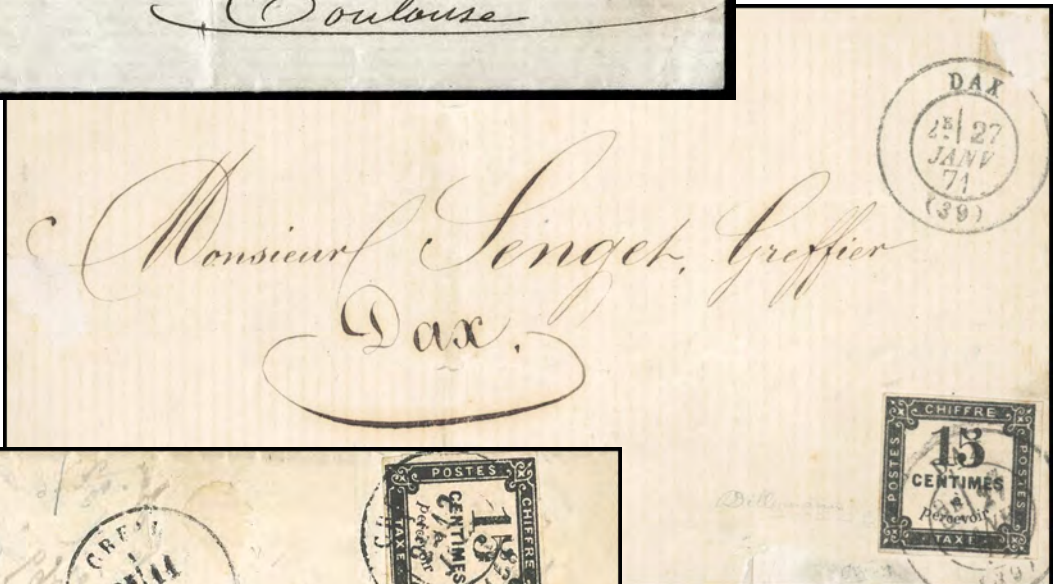 Toulouse
DAX
27
JANV
71
(39)
Monsieur Senget, Greffier
Dax.
CHIFFRE
POSTES
15
CENTIMES
à
percevoir
POSTES
TAXE
POSTES
CHIFFRE
15
CENTIMES
percevoir
TAXE